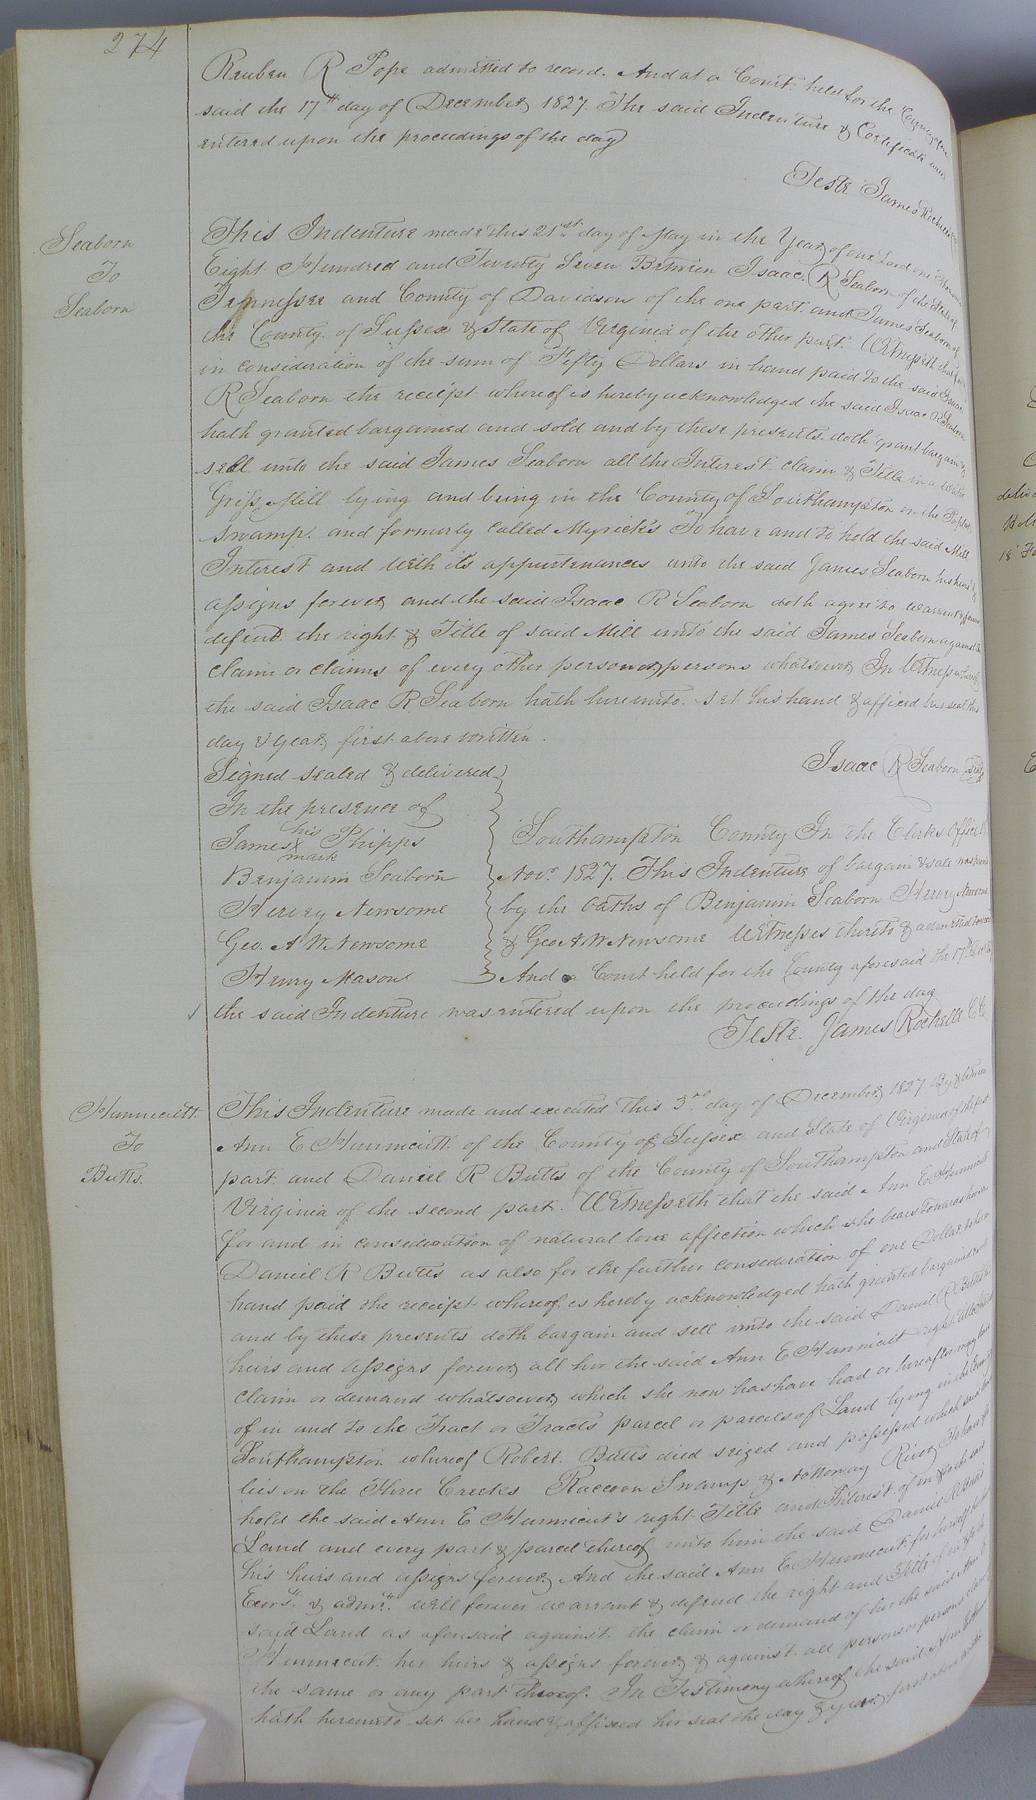 274
Reuben R Pope admitted to record. And at a Court held for the County afore
said the 17th day of December 1827 The said Indenture & Certificate were
entered upon the proceedings of the day
Teste James Rochelle
Seaborn
To
Seaborn
This Indenture made this 21st day of May in the Year of our Lord one Thousand
Eight Hundred and Twenty Seven Between Isaac R Seaborn of the State of
Tennessee and County of Davidson of the one part and James Seaborn of
the County of Sussex & State of Virginia of the other part Witnesseth that for &
in consideration of the sum of Fifty Dollars in hand paid to the said Isaac
R Seaborn the receipt whereof is hereby acknowledged the said Isaac R Seaborn
hath granted bargained and sold and by these presents doth grant bargain &
sell unto the said James Seaborn all the Interest claim & Title in a
Grist Mill lying and being in the County of Southampton on the
Swamp. and formerly called Myrick's To have and to hold the said Mill
Interest and with its appurtenances unto the said James Seaborn his heirs &
assigns forever and the said Isaac R Seaborn doth agree to warrant & forever
defend the right & Title of said Mill unto the said James Seaborn against the
claim or claims of every other person or persons whatsoever In Witness whereof
the said Isaac R Seaborn hath hereunto set his hand & affixed his seal this
day & year first above written.
Isaac R Seaborn Seal
Signed sealed & delivered
In the presence of
James his X mark Phipps
Benjamin Seaborn
Hervey Newsome
Geo. A W Newsome
Henry Mason
Southampton County In the Clerks Office
Novr. 1827. This Indenture of bargain & sale was proved
by the oaths of Benjamin Seaborn Hervey Newsome
& Geo A W Newsome Witnesses thereto & admitted to record
And a Court held for the County aforesaid the 17th
the said Indenture was entered upon the proceedings of the day
Teste. James Rochelle CC
Hunnicutt
To
Butts.
This Indenture made and executed this 3rd day of December 1827 By & between
Ann E Hunnicutt of the County of Sussex and State of Virginia of the first
part and Daniel R Butts of the County of Southampton and State of
Virginia of the second part. Witnesseth that the said Ann E Hunnicutt
for and in consideration of natural love affection which she bears towards
Daniel R Butts as also for the further consideration of one Dollar to her in
hand paid the receipt whereof is hereby acknowledged hath granted bargained & sold
and by these presents doth bargain and sell unto the said Daniel R Butts his
heirs and assigns forever all her the said Ann E Hunnicutt right title
claim or demand whatsoever which she now has have had or hereafter may have
of in and to the Tract or Tracts parcel or parcels of Land lying in the County
Southampton whereof Robert Butts died seized and possessed which said land
lies on the Three Creeks Raccoon Swamp & Nottoway River To have &
hold the said Ann E Hunnicut's right Title and Interest of in & to the said
Land and every part & parcel thereof unto him the said Daniel R Butts
his heirs and assigns forever And the said Ann E Hunnicutt for herself her
Exors. & admrs. will forever warrant & defend the right and Title of in & to the
said Land as aforesaid against the claim or demand of her the said Ann E
Hunnicut her heirs & assigns forever & against all persons or persons
the same or any part thereof. In Testimony whereof the said Ann E
hath hereunto set her hand & affixed her seal the day & year first above written